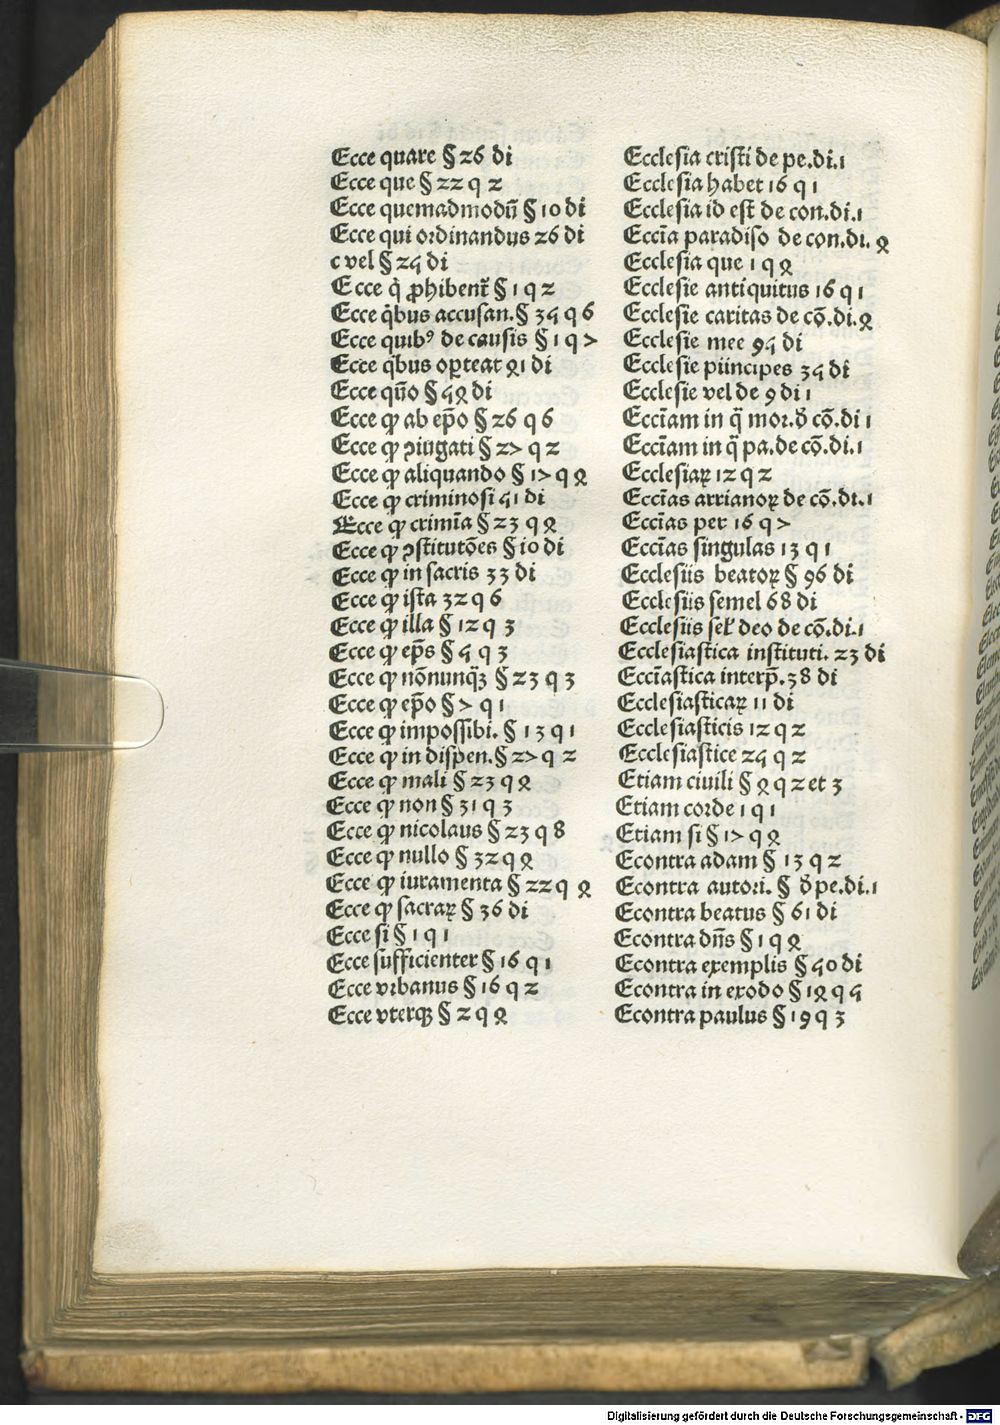 Ecce quare § 26 di
Ecce que § 22 q 2
Ecce quemadmodū § 10 di
Ecce qui ordinandus 26 di
c vel § 25 di
Ecce q̇ ꝓhibent᷑ § 1 q 2
Ecce q̇bus accusan. § 35 q 6
Ecce quibꝰ de causis § 1 q 7
Ecce q̇bus oꝑteat 41 di
Ecce qn̄o § 54 di
Ecce ꝙ ab ep̄o § 26 q 6
Ecce ꝙ ꝯiugati § 27 q 2
Ecce ꝙ aliquando § 17 q 4
Ecce ꝙ criminosi 51 di
Ecce ꝙ crimīa § 23 q 4
Ecce ꝙ ꝯstitutōes § 10 di
Ecce ꝙ in sacris 33 di
Ecce ꝙ ista 32 q 6
Ecce ꝙ illa § 12 q 3
Ecce ꝙ ep̄s § 5 q 3
Ecce ꝙ nōnunq̄ꝫ § 23 q 3
Ecce ꝙ ep̄o § 7 q 1
Ecce ꝙ impossibi. § 13 q 1
Ecce ꝙ in dispen. § 27 q 2
Ecce ꝙ mali § 23 q 4
Ecce ꝙ non § 31 q 3
Ecce ꝙ nicolaus § 23 q 8
Ecce ꝙ nullo § 32 q 4
Ecce ꝙ iuramenta § 22 q 4
Ecce ꝙ sacraꝝ § 36 di
Ecce si § 1 q 1
Ecce sufficienter § 16 q 1
Ecce vrbanus § 16 q 2
Ecce vterqꝫ § 2 q 4
Ecclesia cristi de pe.di.1
Ecclesia habet 16 q 1
Ecclesia id est de con.di.1
Eccīa paradiso de con.di. 4
Ecclesia que 1 q 4
Ecclesie antiquitus 16 q 1
Ecclesie caritas de cō.di.4
Ecclesie mee 95 di
Ecclesie piincipes 35 di
Ecclesie vel de 9 di 1
Eccīam in q̄ mor. ð cō.di 1
Eccīam in q̄ pa.de cō.di.1
Ecclesiaꝝ 12 q 2
Eccīas arrianoꝝ de cō.di.1
Eccīas per 16 q 7
Eccīas singulas 13 q 1
Ecclesiis beatoꝝ § 96 di
Ecclesiis semel 68 di
Ecclesiis seł deo de cō.di.1
Ecclesiastica instituti. 23 di
Eccīastica interp̄.38 di
Ecclesiasticaꝝ 11 di
Ecclesiasticis 12 q 2
Ecclesiastice 25 q 2
Etiam ciuili § 4 q 2 et 3
Etiam corde 1 q 1
Etiam si § 17 q 4
Econtra adam § 13 q 2
Econtra autori. § ð pe.di.1
Econtra beatus § 61 di
Econtra dn̄s § 1 q 4
Econtra exemplis § 50 di
Econtra in exodo § 14 q 5
Econtra paulus § 19 q 3
Digitalisierung gefördert durch die Deutsche Forschungsgemeinschaft - DFG